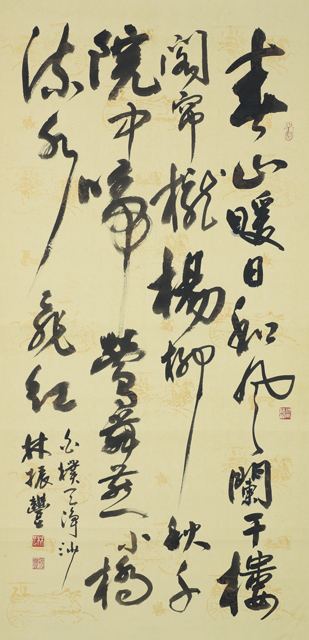 春山暖日和風闌干樓
閣帘櫳楊柳秋千
院中啼鶯舞燕小橋
流水飛紅
白樸天淨沙
林振豐